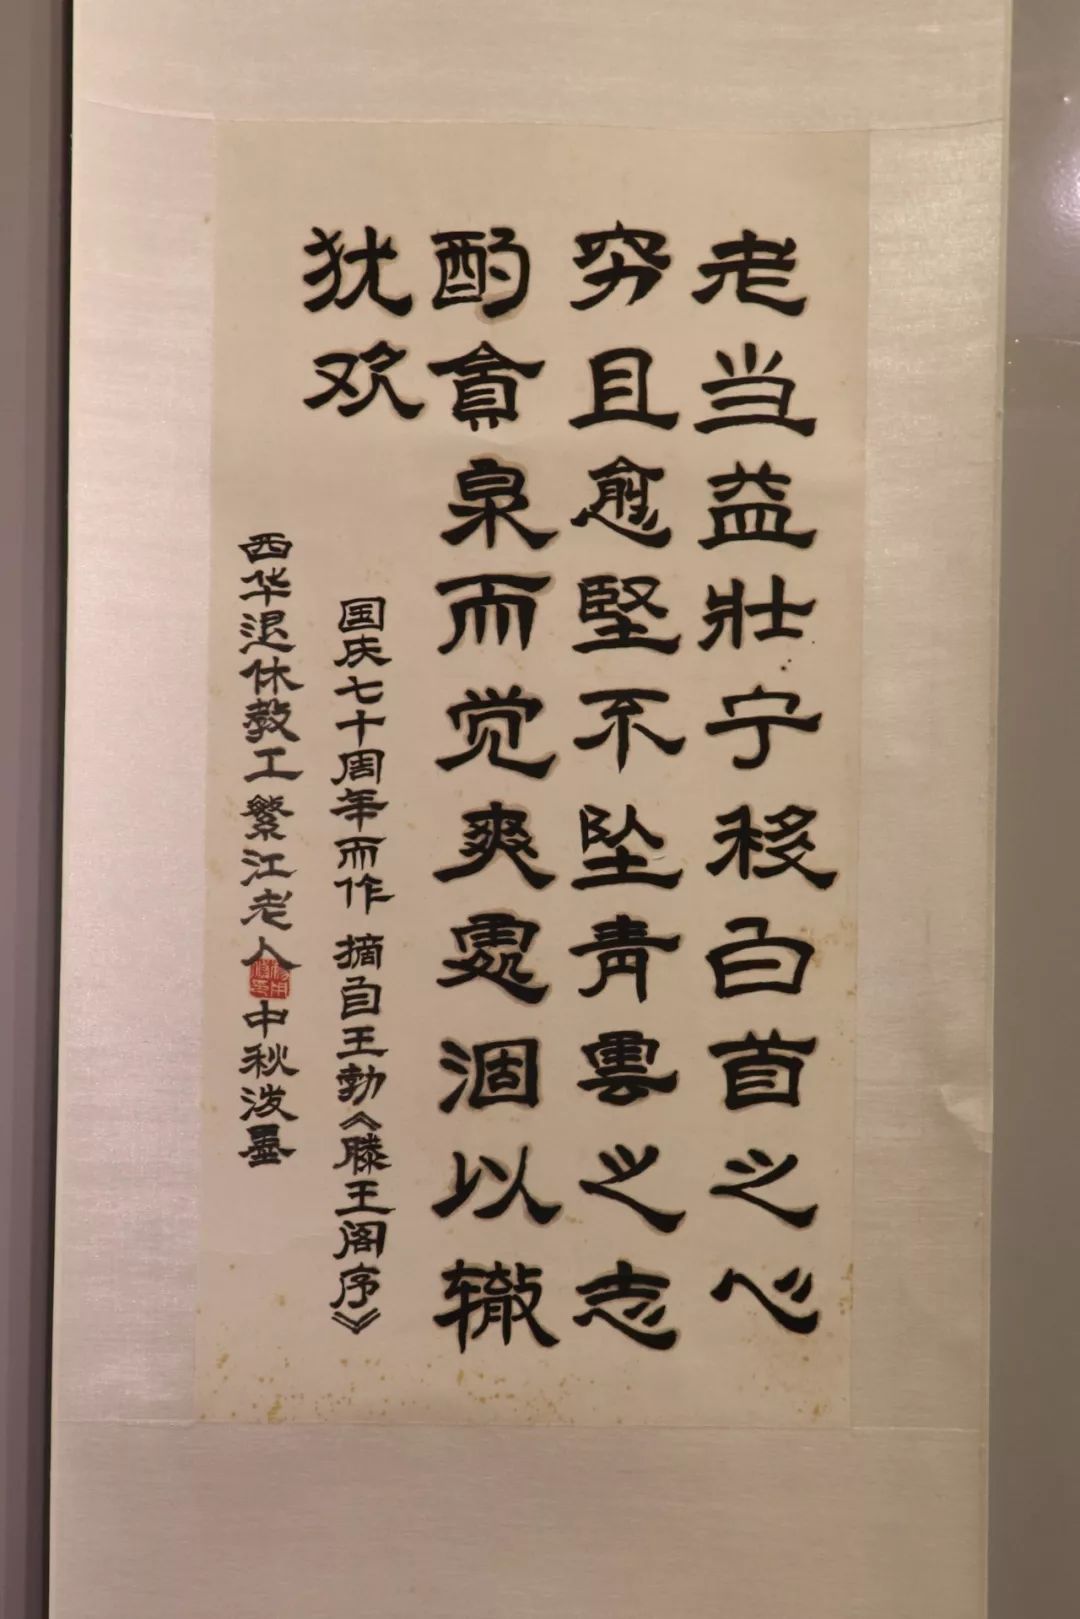 老当益壯宁移白首之心
穷且愈堅不坠青雲之志
酌貪泉而觉爽處涸以辙
犹欢
国庆七十周年而作 摘自王勃《滕王阁序》
西华退休教工繁江老人中秋泼墨